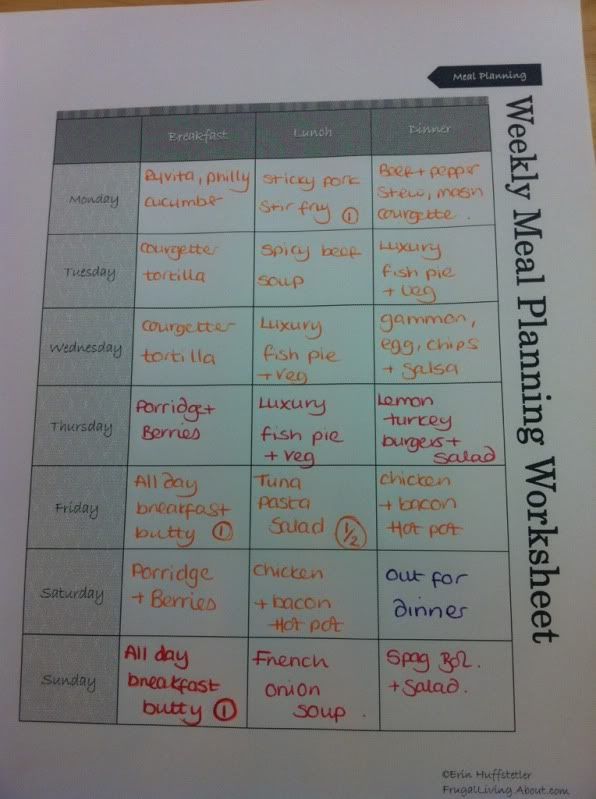 Meal Planning
Weekly Meal Planning Worksheet
Breakfast
Lunch
Dinner
Monday
Ryvita, philly
cucumber
Sticky pork
Stir fry 1
Beef + pepper
Stew, mash
courgette.
Tuesday
courgette
tortilla
Spicy beef
soup
Luxury
fish pie
+ veg
Wednesday
courgette
tortilla
Luxury
fish pie
+ veg
gammon,
egg, chips
+ salsa
Thursday
Porridge +
Berries
Luxury
fish pie
+ veg
Lemon
turkey
burgers +
Salad
Friday
All day
breakfast
butty 1
Tuna
pasta
Salad 1/2
chicken
+ bacon
Hot pot
Saturday
Porridge
+ Berries
chicken
+ bacon
Hot pot
out for
dinner
Sunday
All day
breakfast
butty 1
French
onion
soup.
Spag Bol.
+ Salad.
©Erin Huffstetler
FrugalLiving.About.com